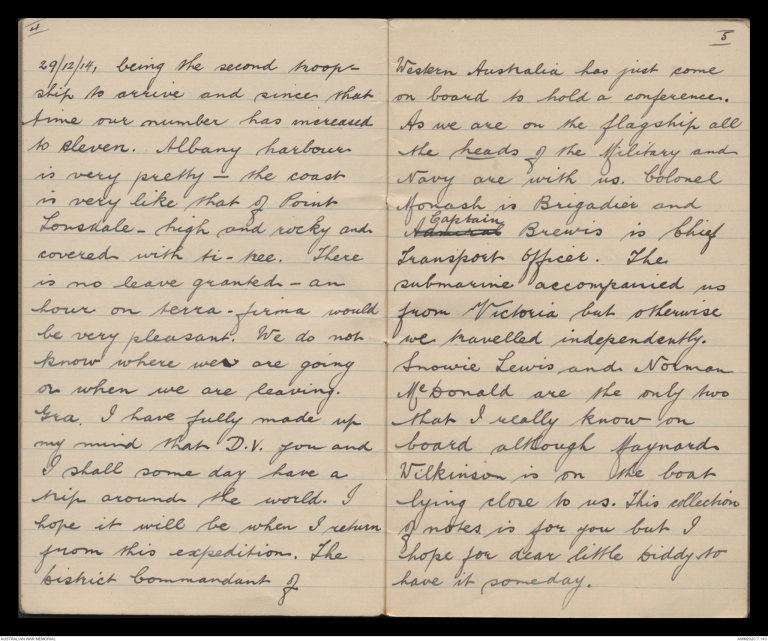 4
29/12/14, being the second troop-
ship to arrive and since that
time our number has increased
to eleven. Albany harbour
is very pretty – the coast
is very like that of Point
Lonsdale – high and rocky and
covered with ti-tree. There
is no leave granted – an
hour on terra-firma would
be very pleasant. We do not
know where we are going
or when we are leaving.
Gra. I have fully made up
my mind that D.V. you and
I shall some day have a
trip around the world. I
hope it will be when I return
from this expedition. The
District Commandant of
5
Western Australia has just come
on board to hold a conference.
As we are on the flagship all
the heads of the Military and
Navy are with us. Colonel
Monash is Brigadier and
Captain
Admiral Brewis is Chief
Transport Officer. The
submarine accompanied us
from Victoria but otherwise
we travelled independently.
Snowie Lewis and Norman
McDonald are the only two
that I really know on
board although Maynard
Wilkinson is on the boat
lying close to us. This collection
of notes is for you but I
hope for dear little Diddy to
have it someday.
AUSTRALIAN WAR MEMORIAL